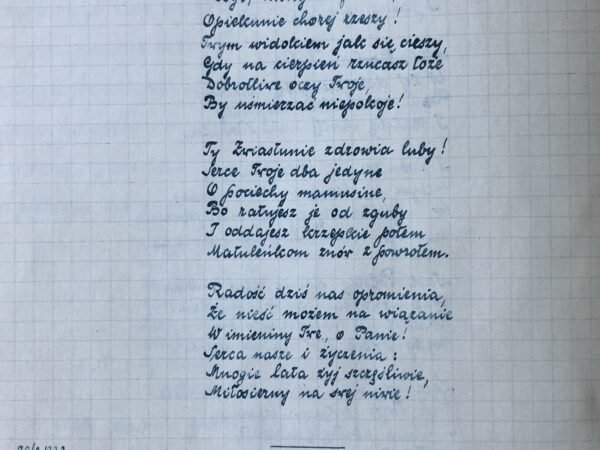 Opiekunie chorej rzeszy!
Twym widokiem jak się cieszy,
Gdy na cierpień rzucasz łoże
Dobrotliwe oczy Twoje,
By uśmierzać niepokoje!
Ty Zwiastunie zdrowia luby!
Serce Twoje dba jedyne
O pociechy mamusine,
Bo ratujesz je od zguby
I oddajesz krzepkie potem
Matuleńkom znów z powrotem.
Radość dziś nas opromienia,
Że nieść możem na wiązanie
W imieniny Twe, o Panie!
Serca nasze i życzenia:
Mnogie lata żyj szczęśliwie,
Miłosierny na swej niwie!